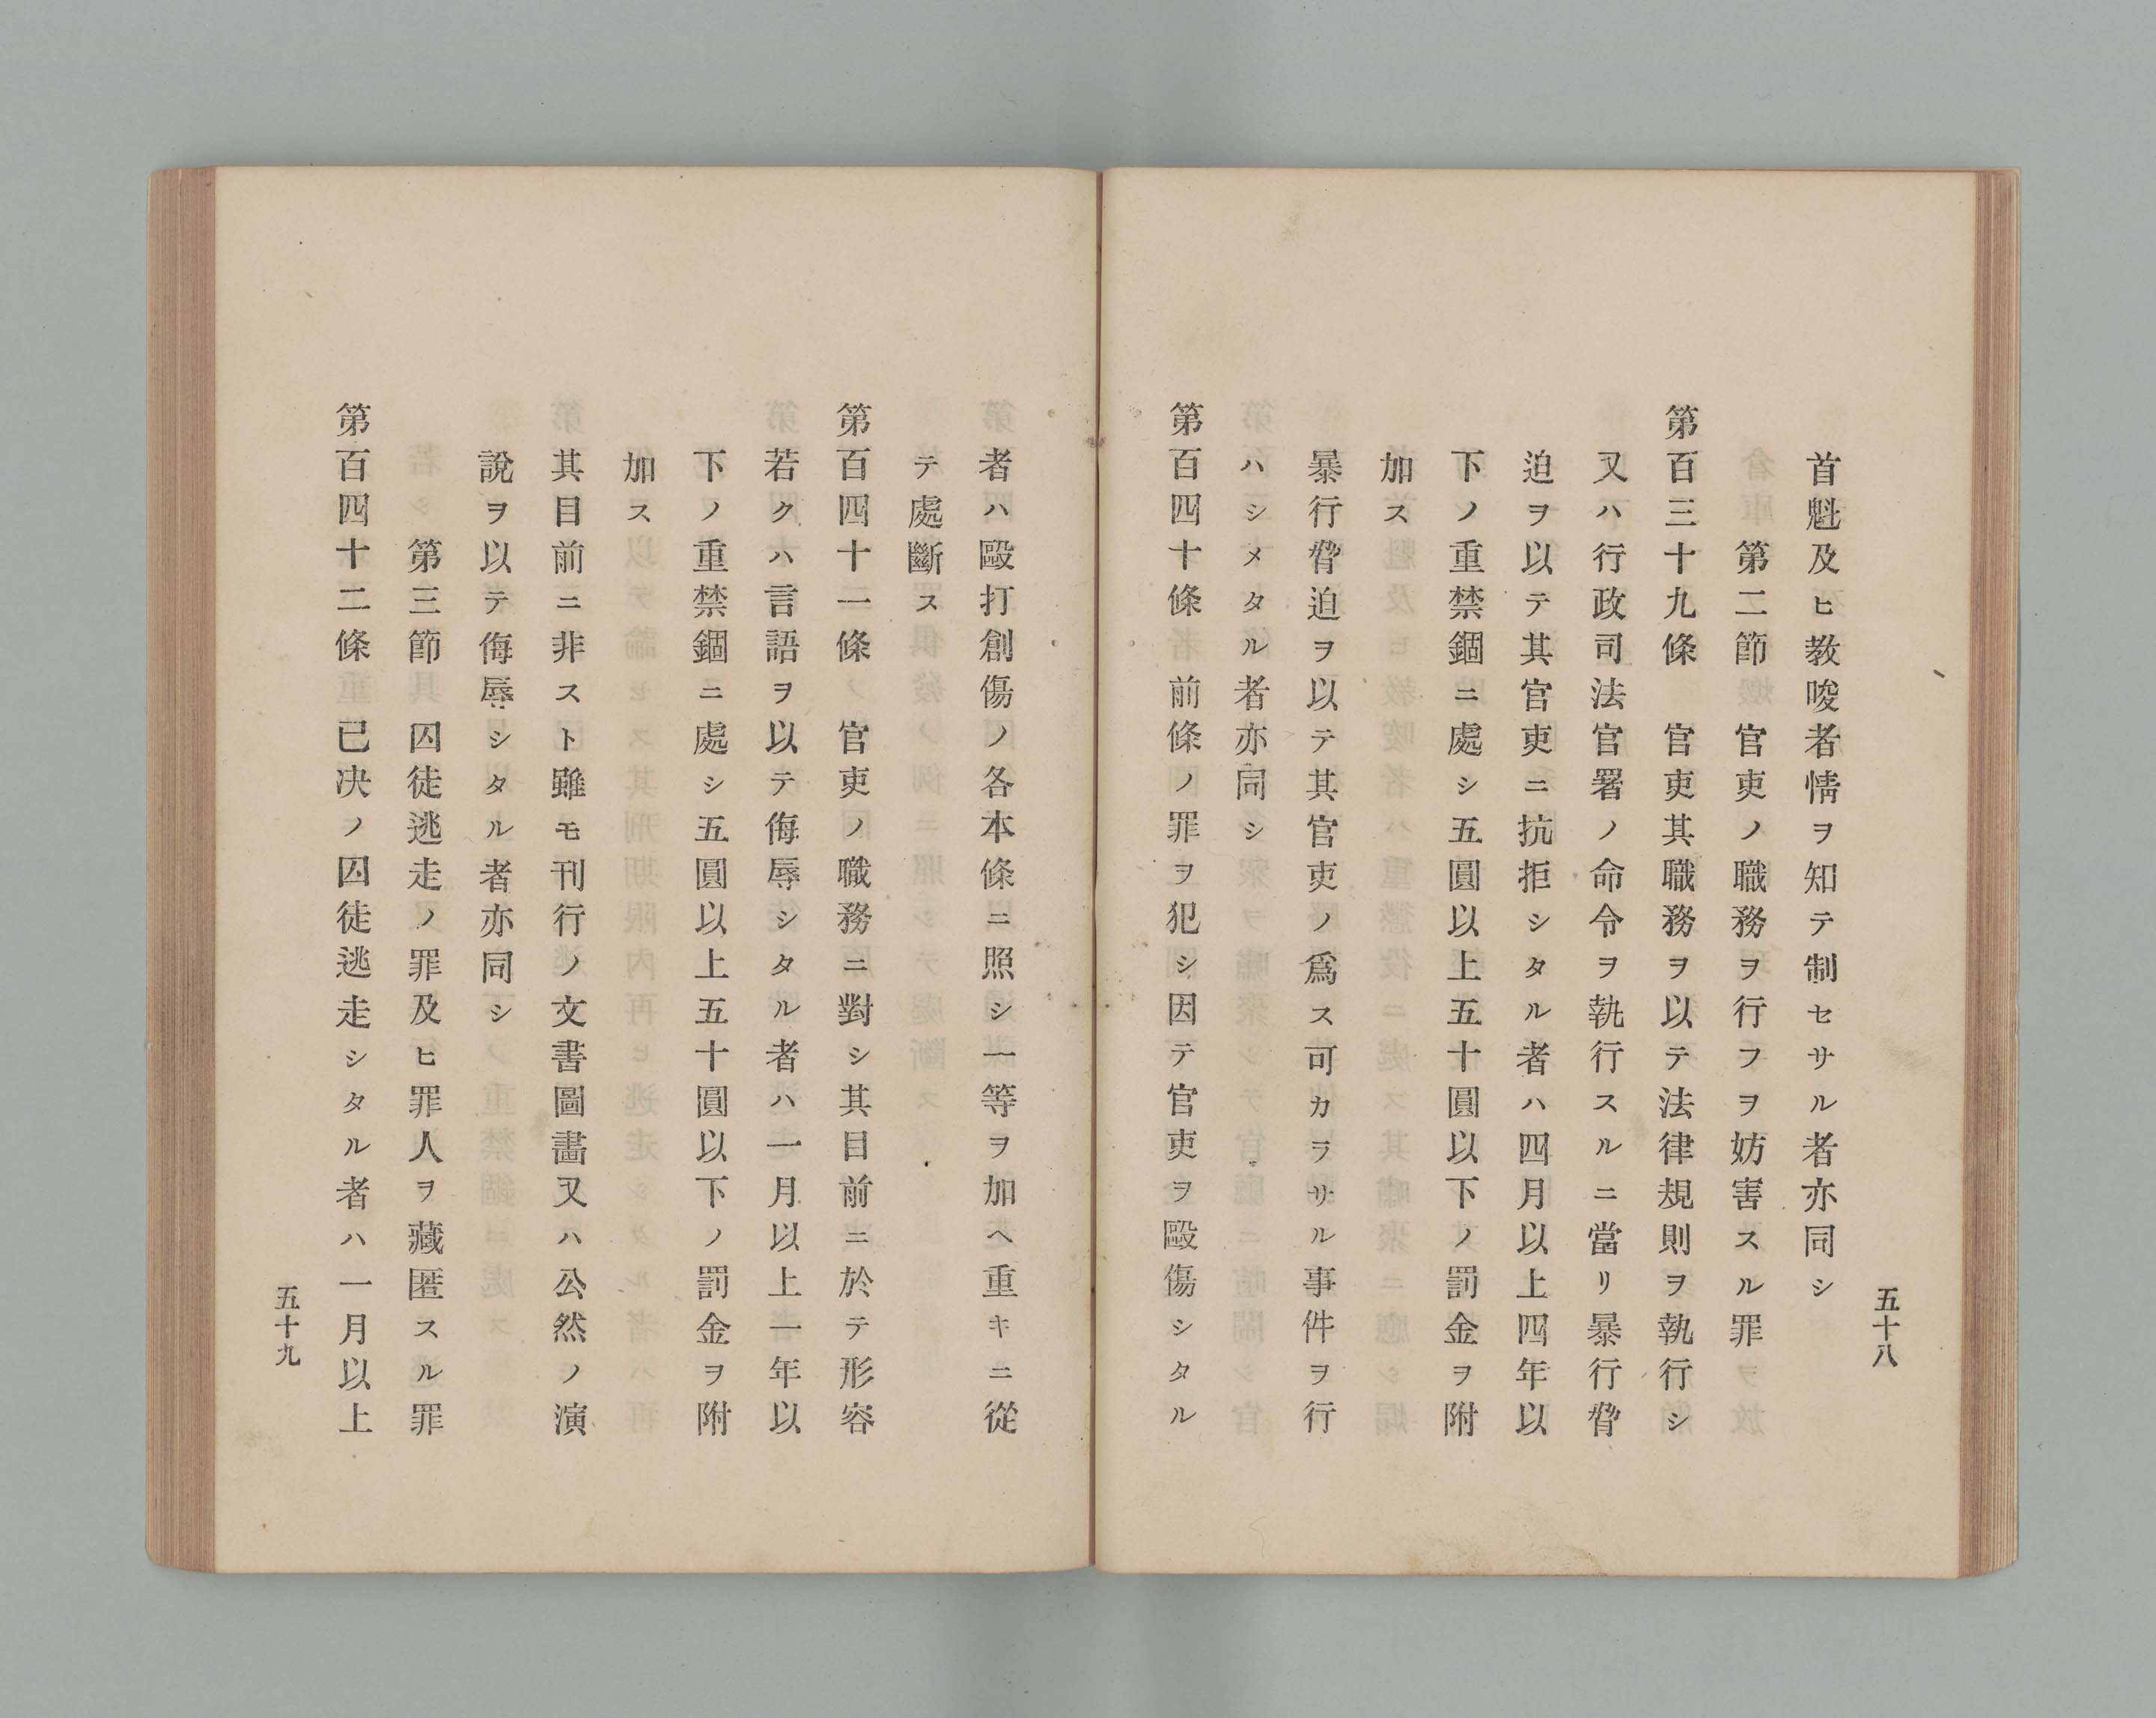 五十八
首魁及ヒ教唆者情ヲ知テ制セサル者亦同シ
第二節　官吏ノ職務ヲ行フヲ妨害スル罪
第百三十九條　官吏其職務ヲ以テ法律規則ヲ執行シ
又ハ行政司法官署ノ命令ヲ執行スルニ當リ暴行脅
迫ヲ以テ其官吏ニ抗拒シタル者ハ四月以上四年以
下ノ重禁錮ニ處シ五圓以上五十圓以下ノ罰金ヲ附
加ス
暴行脅迫ヲ以テ其官吏ノ爲ス可カラサル事件ヲ行
ハシメタル者亦同シ
第百四十條　前條ノ罪ヲ犯シ因テ官吏ヲ毆傷シタル
者ハ毆打創傷ノ各本條ニ照シ一等ヲ加ヘ重キニ從
テ處斷ス
第百四十一條　官吏ノ職務ニ對シ其目前ニ於テ形容
若クハ言語ヲ以テ侮辱シタル者ハ一月以上一年以
下ノ重禁錮ニ處シ五圓以上五十圓以下ノ罰金ヲ附
加ス
其目前ニ非スト雖モ刊行ノ文書圖畵又ハ公然ノ演
說ヲ以テ侮辱シタル者亦同シ
第三節　囚徒逃走ノ罪及ヒ罪人ヲ藏匿スル罪
第百四十二條　已决ノ囚徒逃走シタル者ハ一月以上
五十九